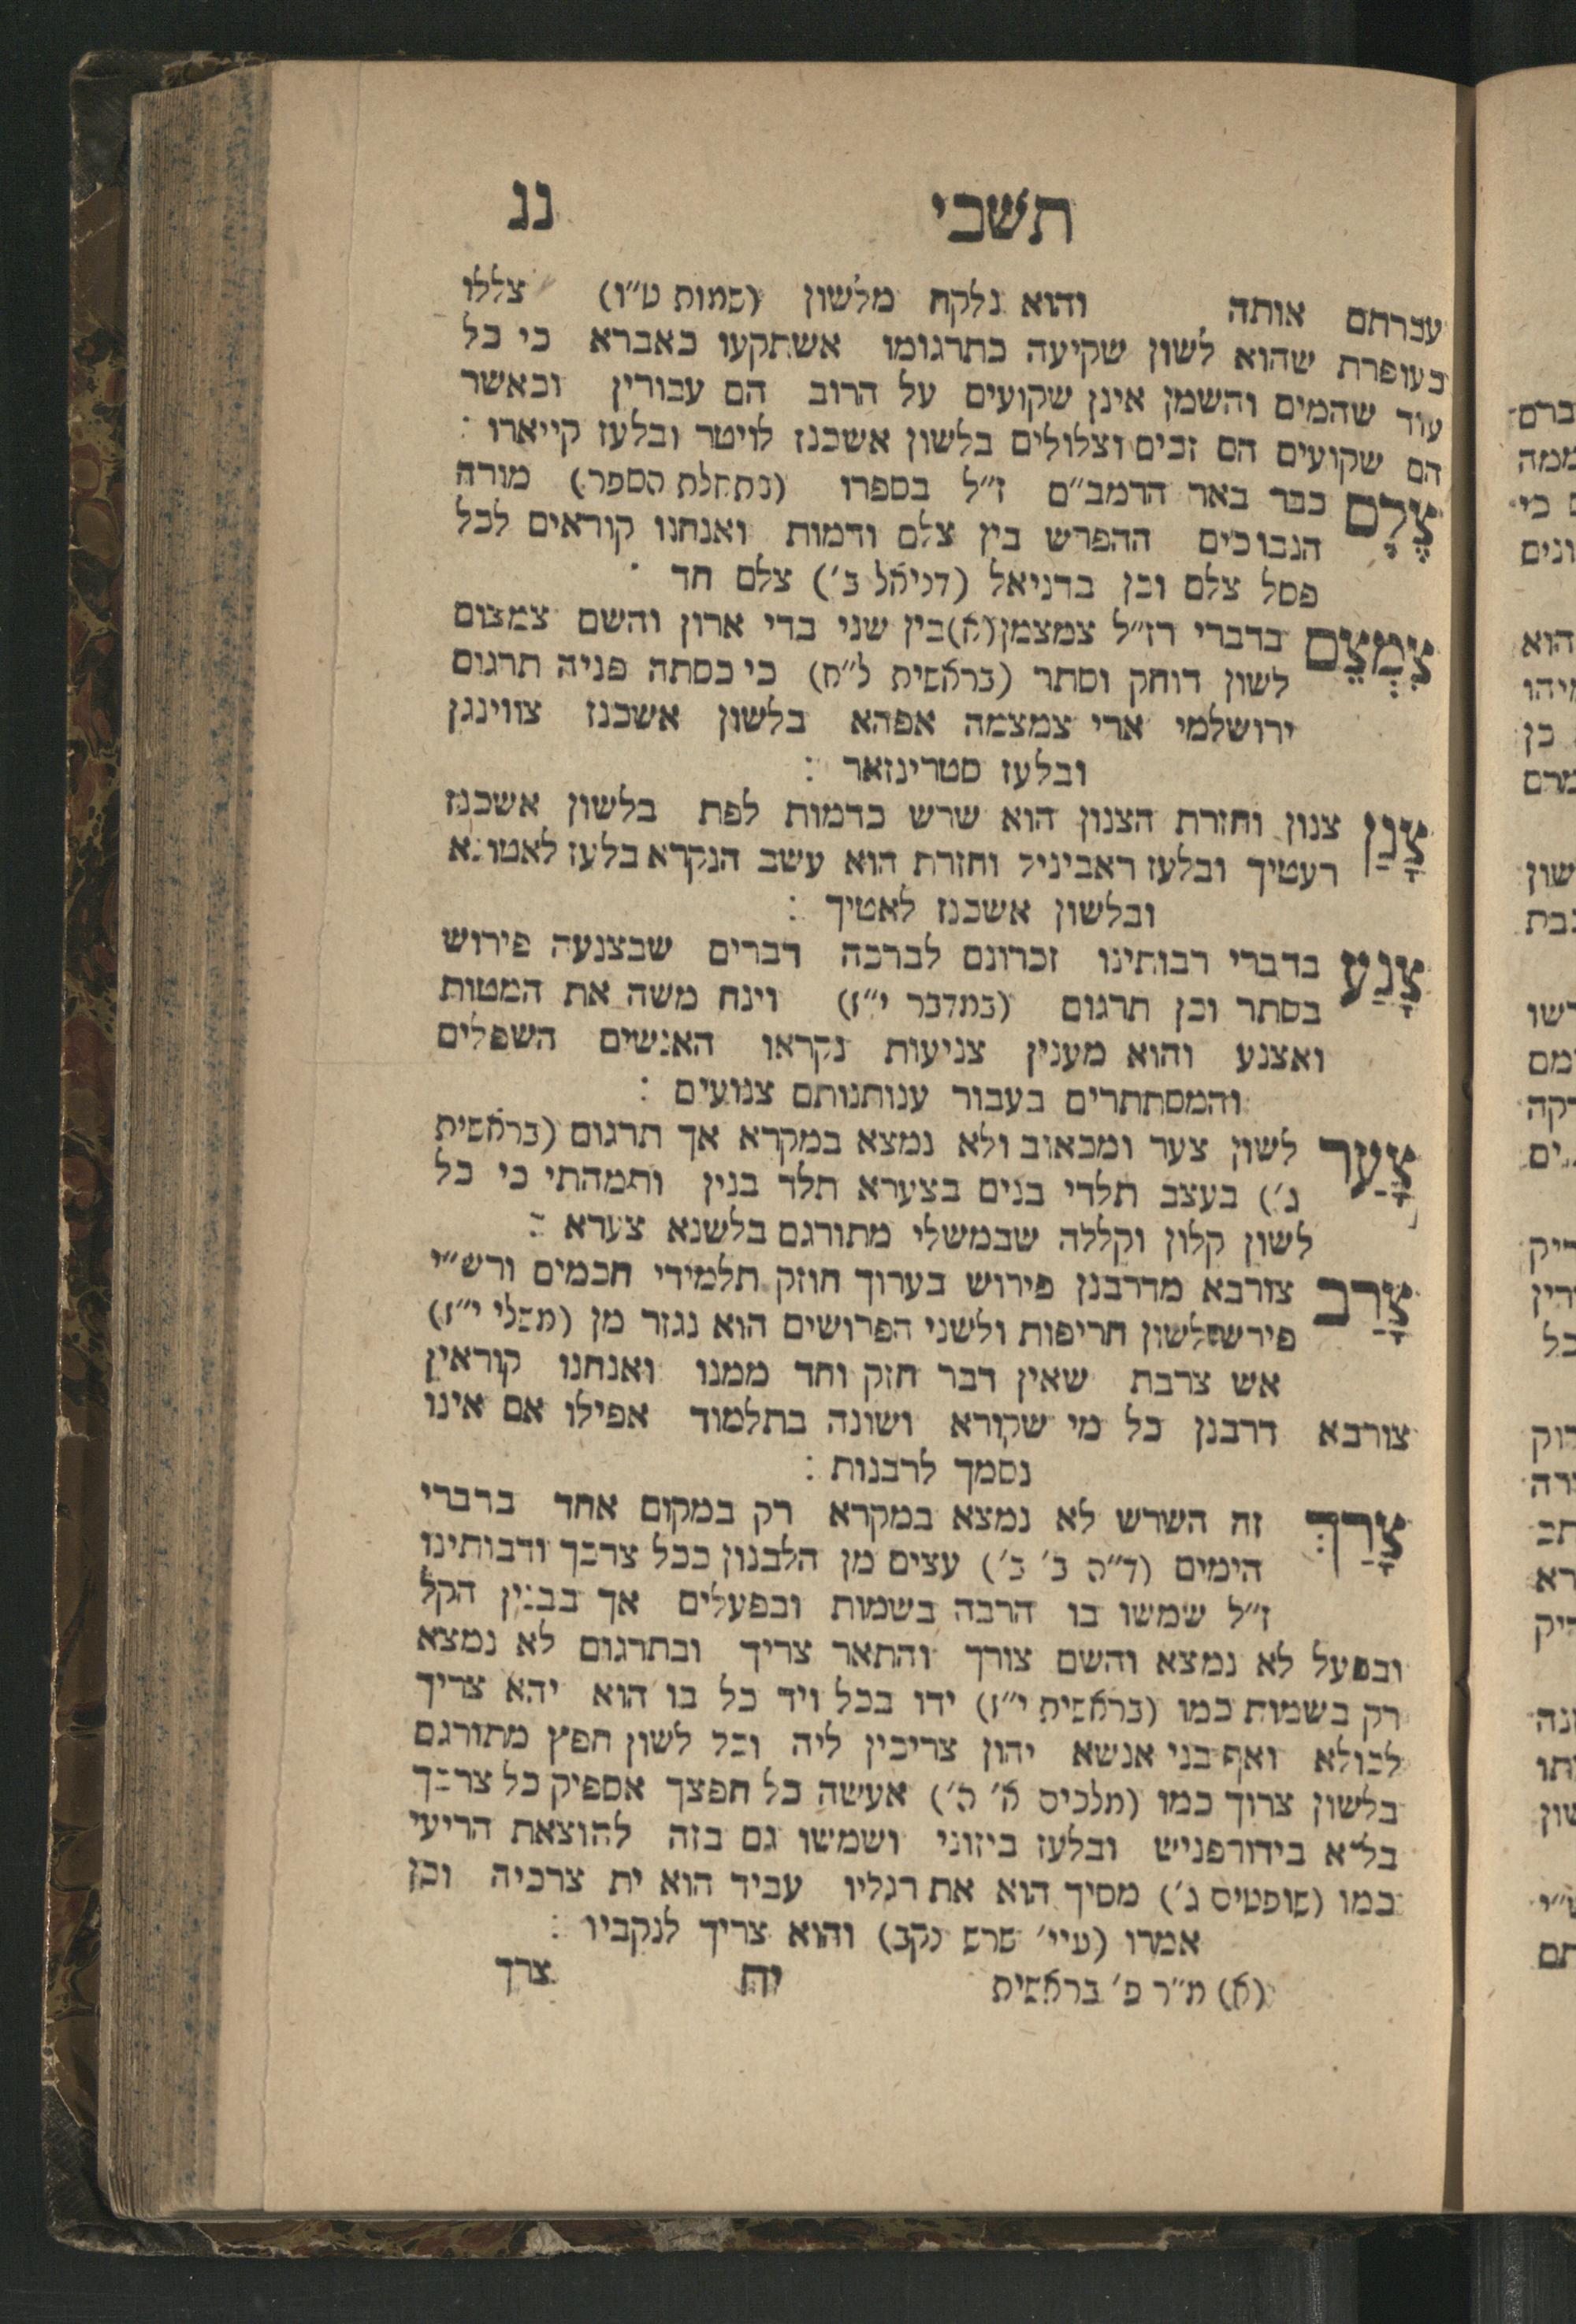 תשבי נג
עברתם אותה והוא נלקח מלשון (שמות ט״ו) צללו
בעופרת שהוא לשון שקיעה כתרגומו אשתקעו כאברא כי כל
עוד שהמים והשמן אינן שקועים על הרוב הם עכורין וכאשר
הם שקועים הם זכים וצלולים בלשון אשכנז לויטר ובלעז קייארו :
צֶלֶם כבר באר הרמב״ם ז״ל בספרו (בתחלת הספר) מורה
הנבוכים ההפרש בין צלם ודמות ואנחנו קוראים לכל
פסל צלם וכן בדניאל (דניאל ב׳) צלם חד ׃
צִמְצֵם בדברי רז״ל צמצמן(א)בין שני בדי ארון והשם צמצום
לשון דוחק וסתר (בראשית ל״ח) כי כסתה פניה תרגום
ירושלמי ארי צמצמה אפהא בלשון אשכנז צווינגן
ובלעז סטרינזאר :
צָנַן צנון וחזרת הצנון הוא שרש כדמות לפת בלשון אשכנז
רעטיך ובלעז ראביניל וחזרת הוא עשב הנקרא בלעז לאטוגא
ובלשון אשכנז לאטיך :
צָנַע בדברי רבותינו זכרונם לברכה דברים שבצנעה פירוש
בסתר וכן תרגום (במדבר י״ז) וינח משה את המטות
ואצנע והוא מענין צניעות נקראו האנשים השפלים
והמסתתרים בעבור ענותנותם צנועים :
צָעַר לשון צער ומכאוב ולא נמצא במקרא אך תרגום (בראשית
ג׳) בעצב תלדי בנים בצערא תלד בנין ותמהתי כי כל
לשון קלון וקללה שבמשלי מתורגם בלשנא צערא :
צָרַב צורבא מדרבנן פירוש בערוך חוזק תלמידי חכמים ורש״י
פירש לשון חריפות ולשני הפרושים הוא נגזר מן (משלי י״ז)
אש צרבת שאין דבר חזק וחד ממנו ואנחנו קוראין
צורבא דרבנן כל מי שקורא ושונה בתלמוד אפילו אם אינו
נסמך לרבנות :
צָרַךְ זה השרש לא נמצא במקרא רק במקום אחד בדברי
הימים (ד״ה ב׳ ב׳) עצים מן הלבנון ככל צרכך ורבותינו
ז״ל שמשו בו הרבה בשמות ובפעלים אך בבנין הקל
ובפעל לא נמצא והשם צורך והתאר צריך ובתרגום לא נמצא
רק בשמות כמו (בראשית י״ז) ידו בכל ויד כל בו הוא יהא צריך
לכולא ואף בני אנשא יהון צריכין ליה וכל לשון חפץ מתורגם
בלשון צרוך כמו (מלכים א׳ ה׳) אעשה כל חפצך אספיק כל צרכך
בל״א בידורפניש ובלעז ביזוני ושמשו גם בזה להוצאת הריעי
כמו (שופטים ג׳) מסיך הוא את רגליו עביד הוא ית צרכיה וכן
אמרו (עיי׳ שרש נקב) והוא צריך לנקביו :
(א) מ״ר פ׳ בראשית יח צרך